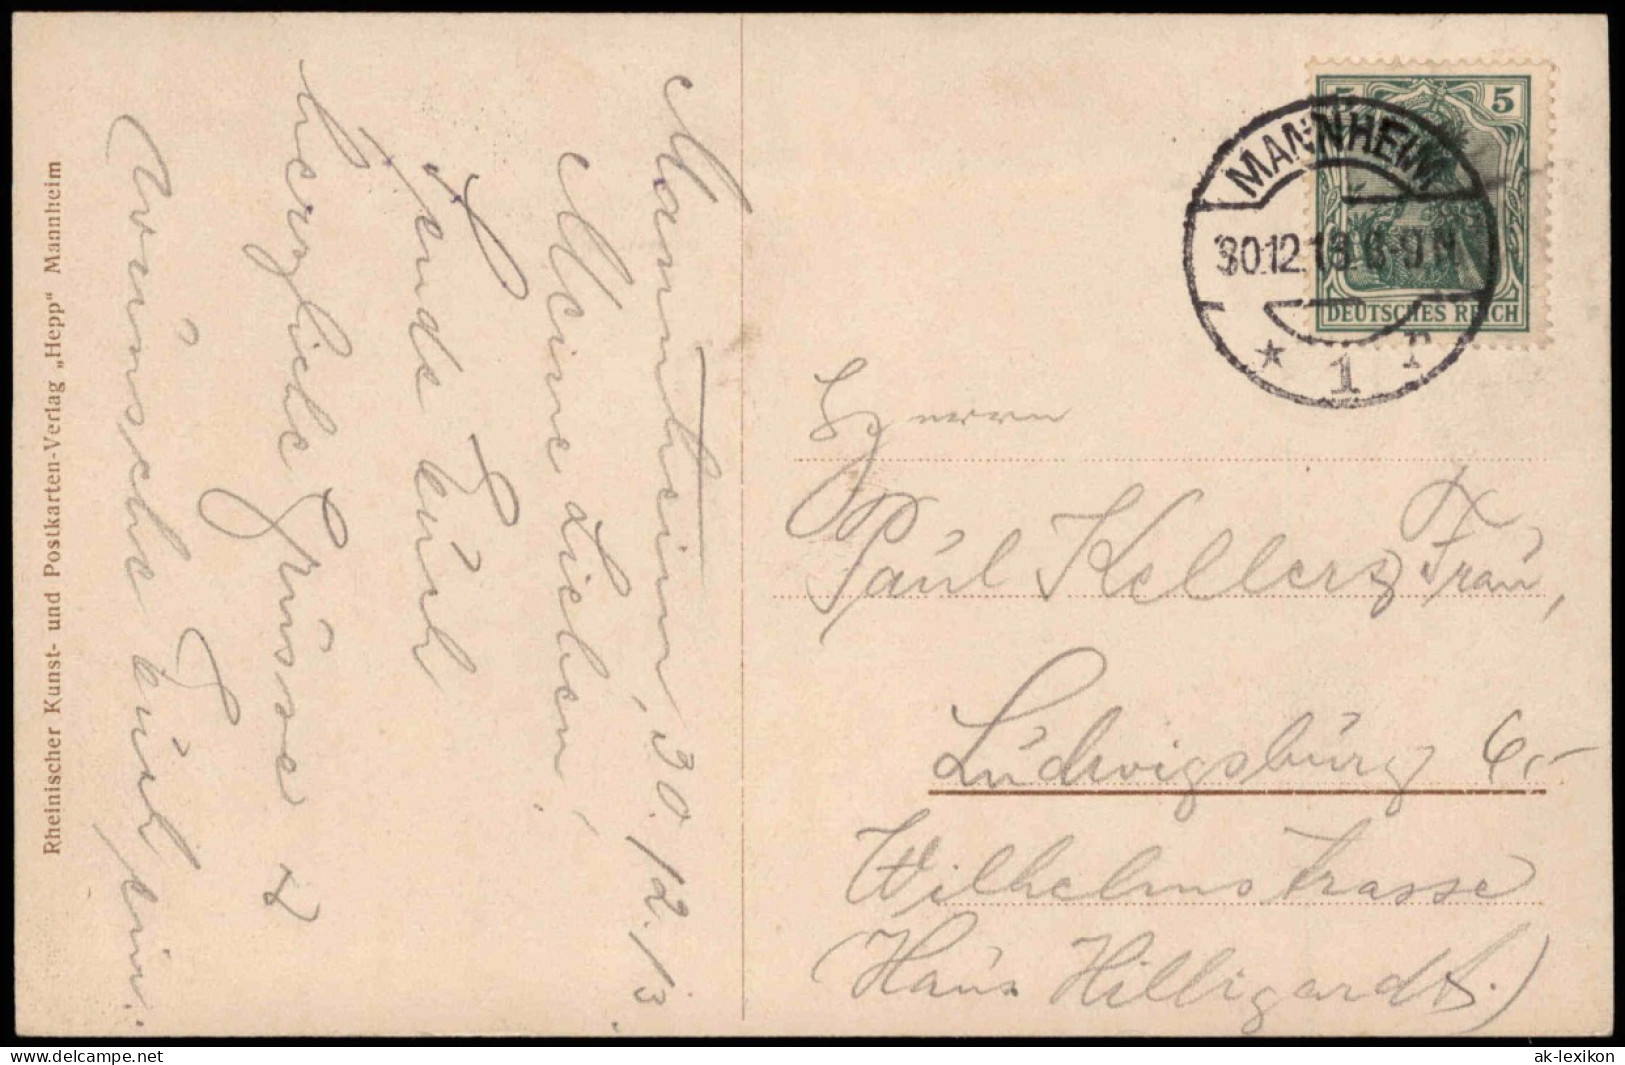 Mannheim, 30./12./13.
Meine Lieben!
Sende Euch
herzliche Grüsse &
wünsche Euch ein
Rheinischer Kunst- und Postkarten-Verlag „Hepp“ Mannheim
5 5
DEUTSCHES REICH
MANNHEIM
30.12.13. 8-9 N
* 1 r
Herrn
Paul Kellers Frau,
Ludwigsburg 6,-
Wilhelmstrasse
(Haus Hilligardt.)
ak-ansichtskarten.de
ak-lexikon